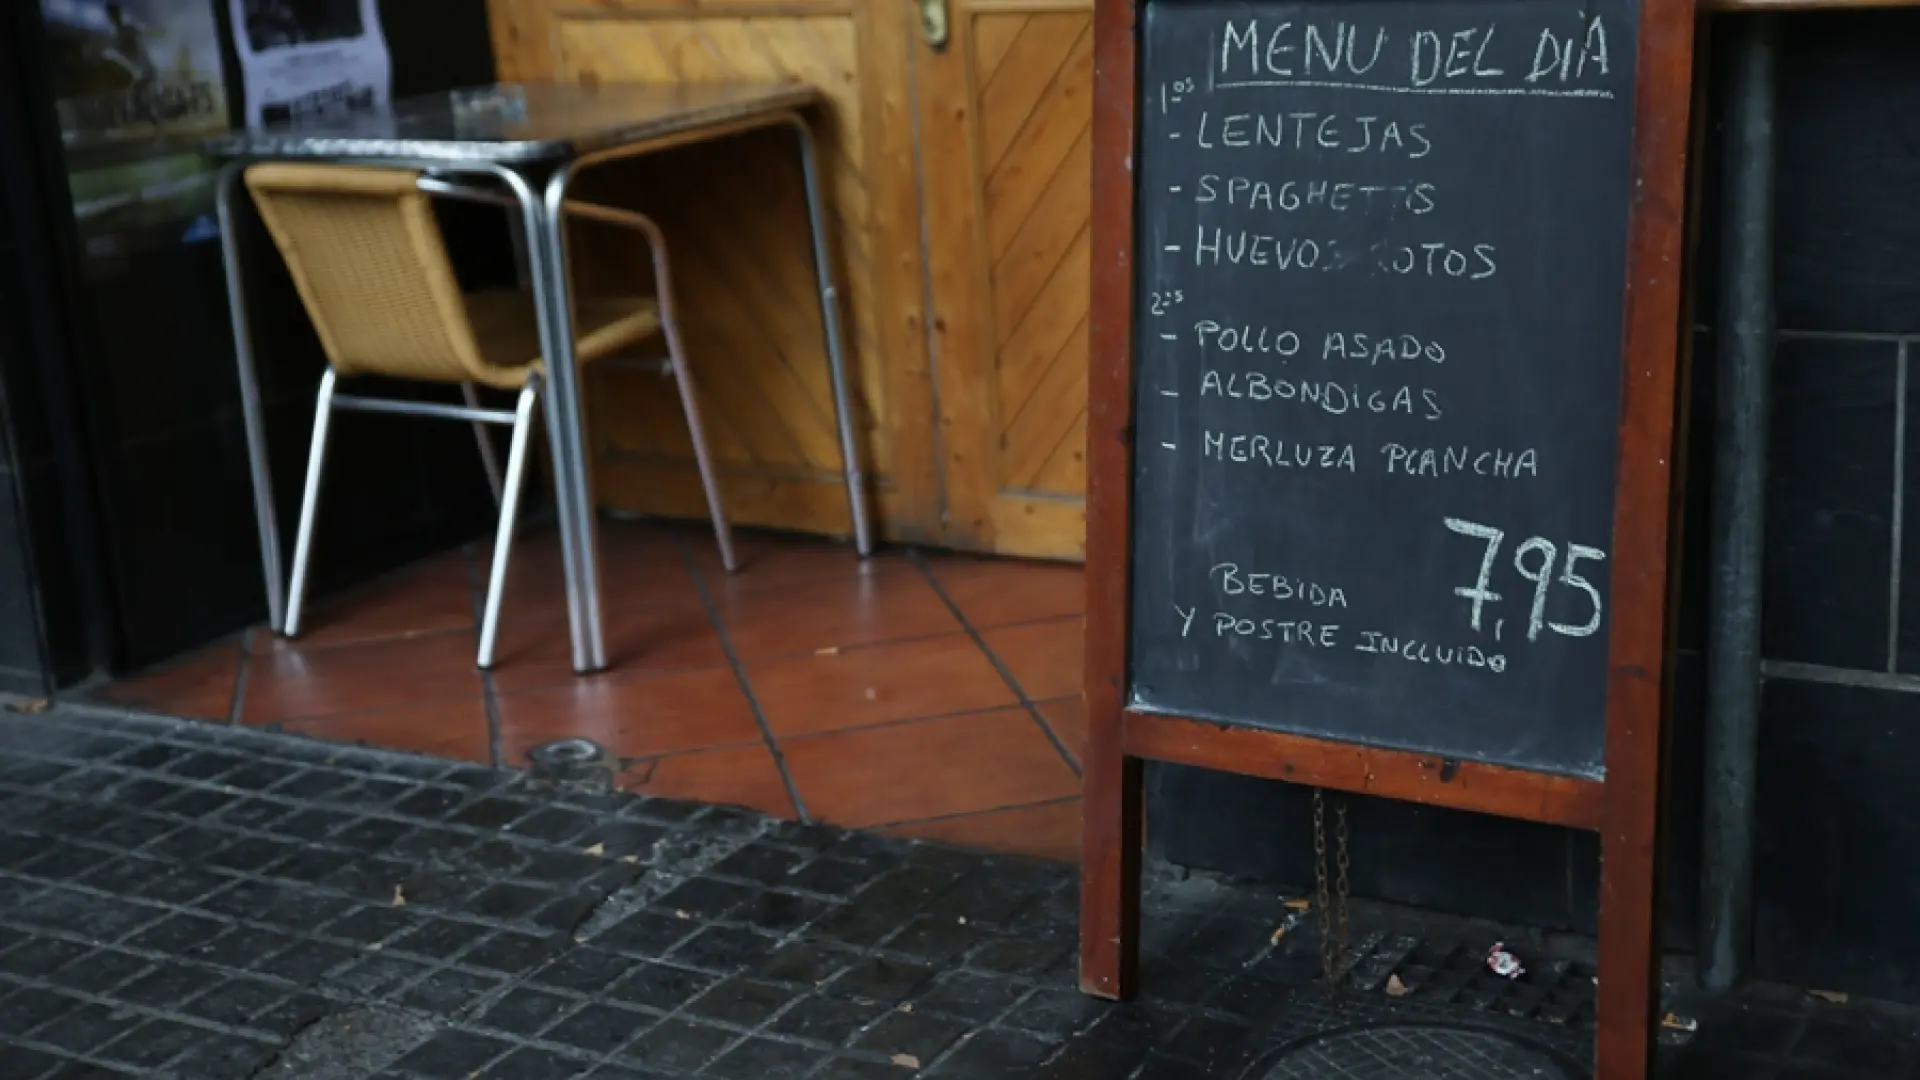 MENU DEL DIA
1os
- LENTEJAS
- SPAGHETTIS
- HUEVOS ROTOS
2os
- POLLO ASADO
- ALBONDIGAS
- MERLUZA PLANCHA
7,95
BEBIDA
Y POSTRE INCLUIDO